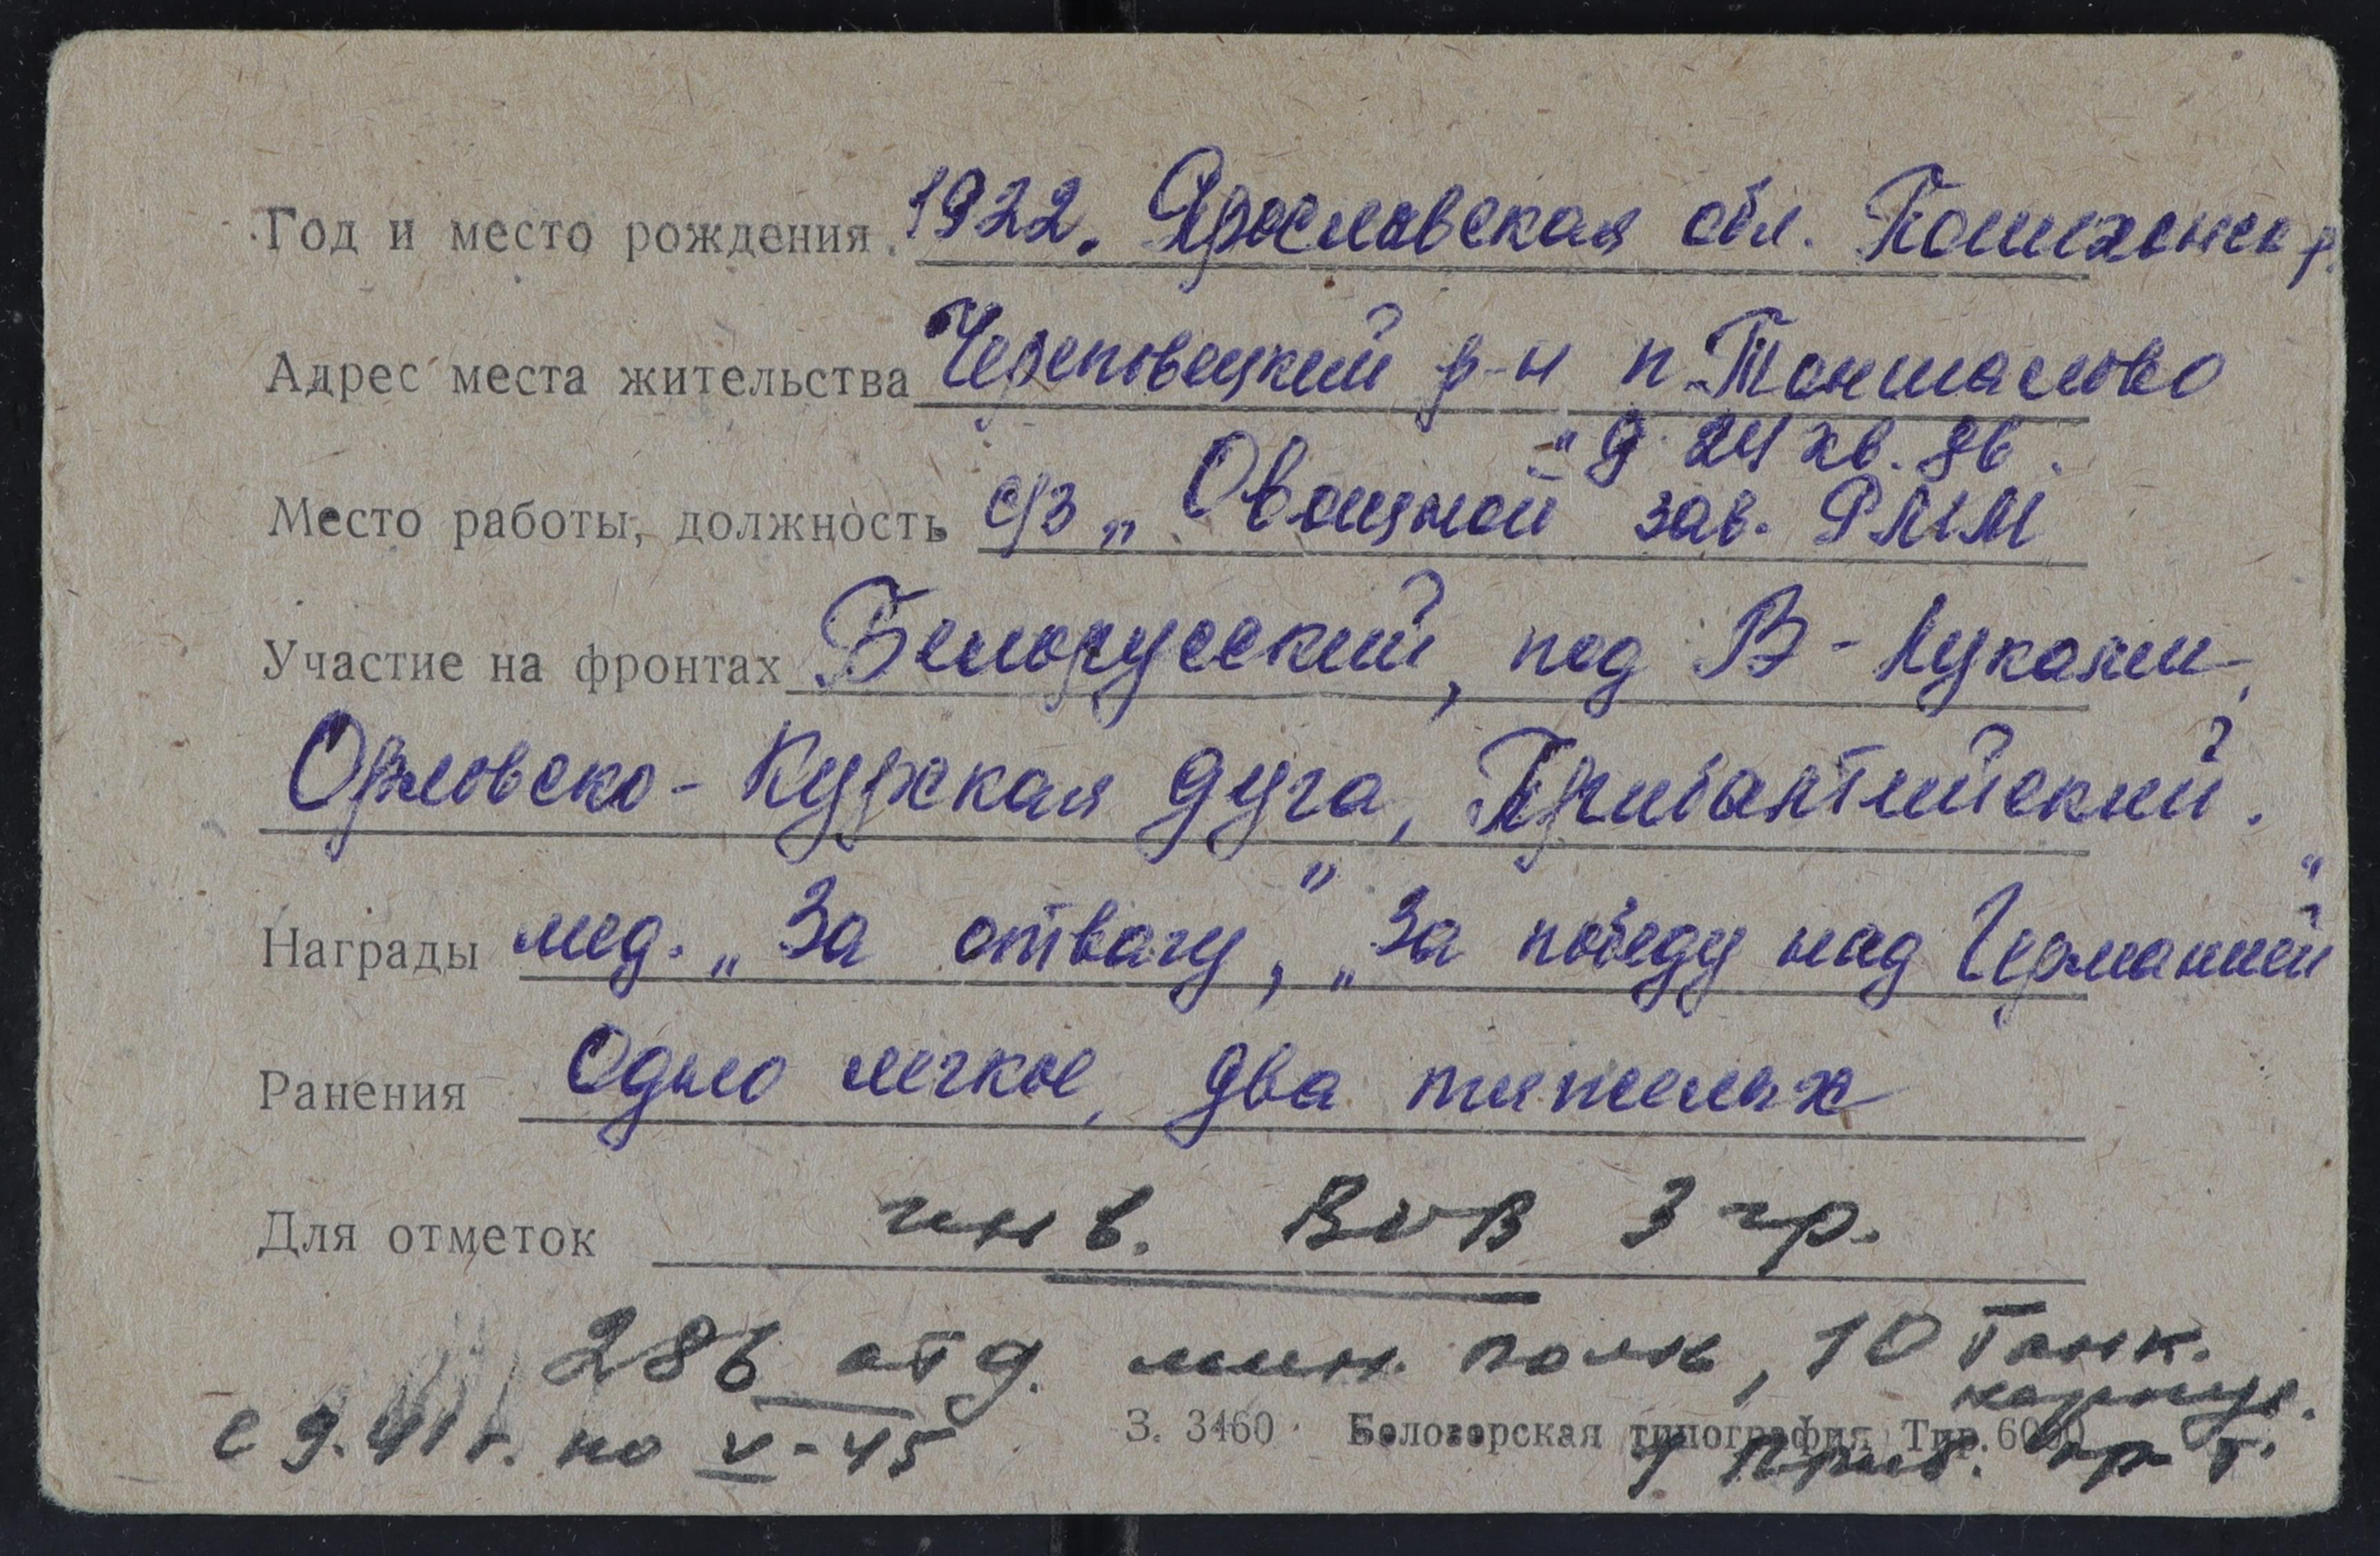 Год и место рождения. 1922. Ярославская обл. Пошехонск р.
Адрес места жительства Череповецкий р-н п. Тоншалово
д 24 кв. 86.
Место работы, должность с/з „Овощной" зав. РММ
Участие на фронтах Белорусский, под В-Луками,
Орловско-Курская дуга, Прибалтийский.
Награды мед. „За отвагу", „За победу над Германией"
Ранения Одно легкое, два тяжелых
Для отметок инв. ВОВ 3 гр.
286 отд. мин. полк, 10 Танк.
корпус.
с 9.41 г. по V-45
З. 3460 Белозерская типография Тир. 6000
1 Приб. фр-т.